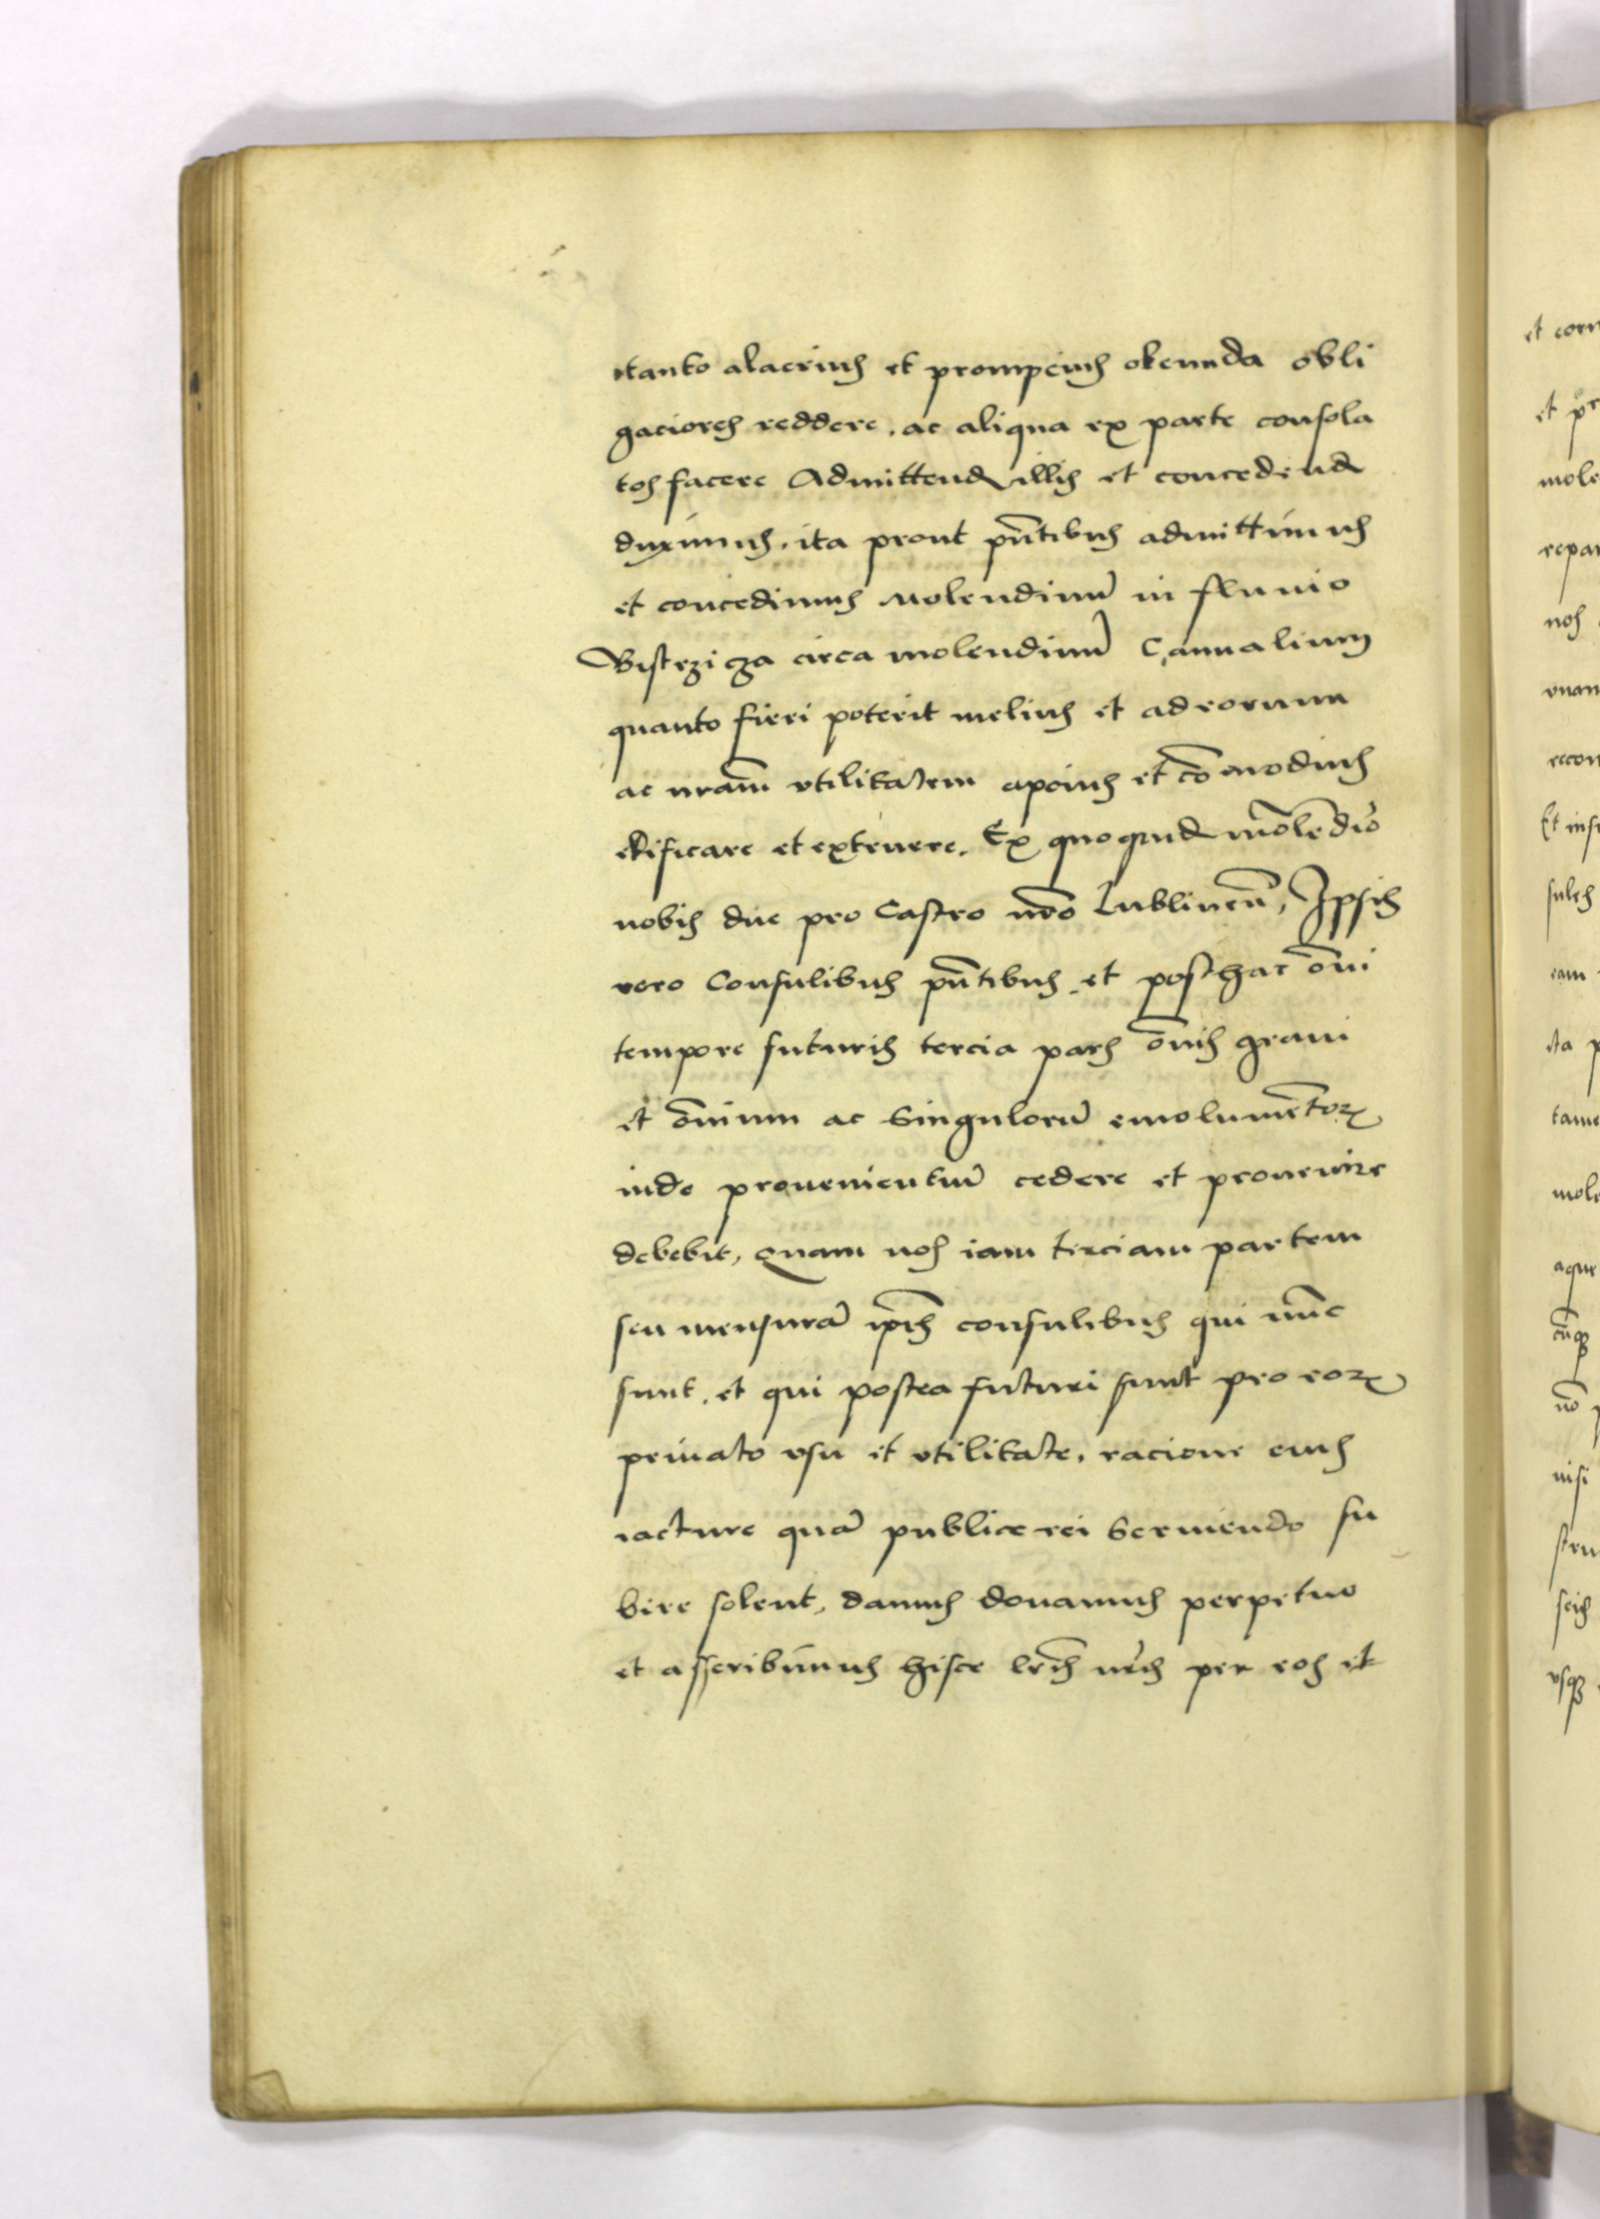 tanto alacrius et prompcius obeunda obli
gaciores reddere, ac aliqua ex parte consola
tos facere Admittend illis et concedend
duximus, ita prout pn̄tibus admittimus
et concedimus Molendinū in fluuio
Bistrzicza circa molendinū Cannalium
quanto fieri poterit melius et ad eorum
ac nr̄am vtilitatem apcius et cōmodius
edificare et extruere. Ex quoquid mōlēdīo
nobis due pro Castro nr̄o Lublineñ, Ipsis
vero Consulibus pn̄tibus et posthac ōni
tempore futuris tercia pars ōnis grani
et ōnium ac Singulorū emolumētoꝝ
inde prouenientiū cedere et prouenire
debebit, Quam nos iam terciam partem
seu mensurā ip̄is consulibus qui nūc
sunt, et qui postea futuri sunt pro eoꝝ
priuato vsu et vtilitate, racione eius
iacture quā publice rei seruiendo su
bire solent, damus donamus perpetuo
et asscribimus hisce lr̄is nr̄is per eos et
et p
mole
repar
nos
Et inse
sules
eam
ita p
tame
mole
aque
cūqꝫ
nō
nisi
vsqꝫ